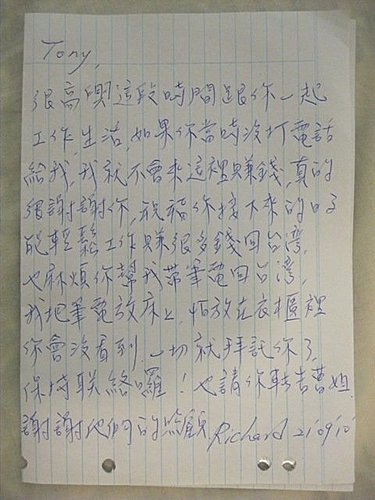 Tony,
很高興這段時間跟你一起
工作生活,如果你當時沒打電話
給我,我就不會來這裡賺錢,真的
很謝謝你,祝福你接下來的日子
能輕鬆工作賺很多錢回台灣,
也麻煩你幫我帶筆電回台灣,
我把筆電放床上,怕放在衣櫃裡
你會沒看到,一切就拜託你了,
保持联絡囉!也請你転告
謝謝他們的照顧 Richard 21/09/10